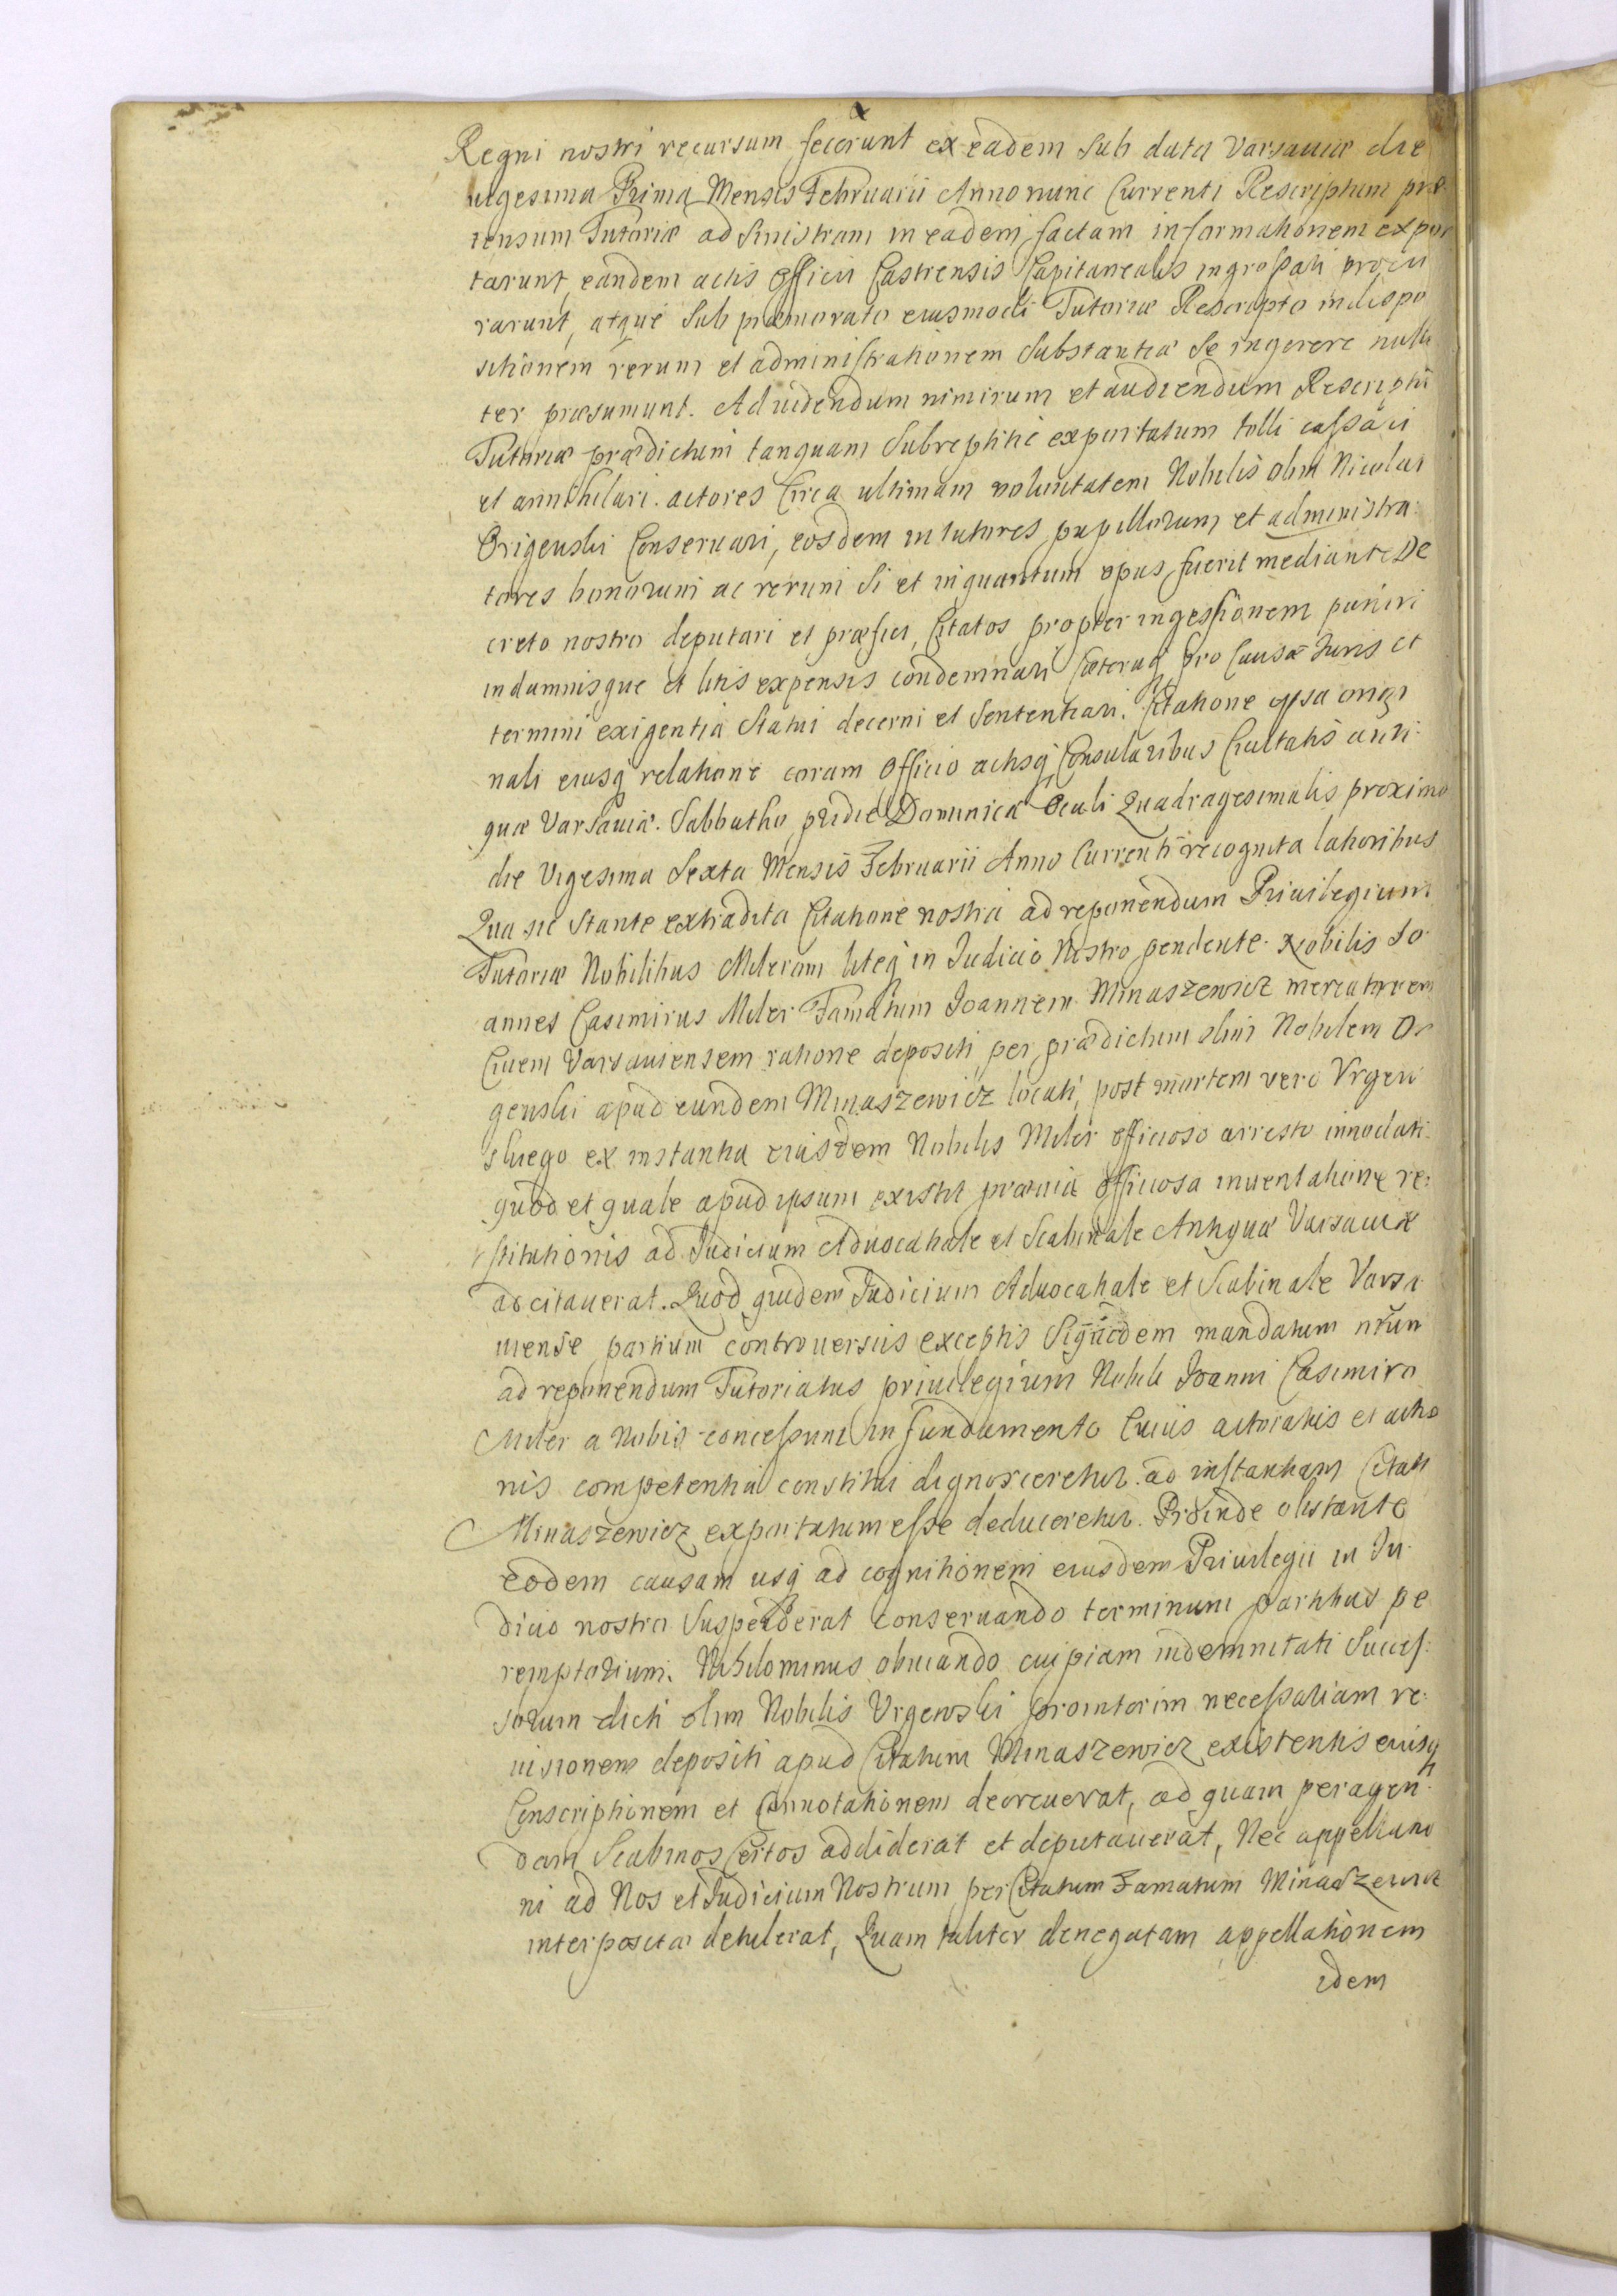 Regni nostri recursum fecerunt ex eadem sub data Varsaviæ die
uigesima Prima Mensis Februarii Anno nunc Currenti Rescriptum præ
tensum Tutoriæ ad sinistram in eadem factam informationem expor
tarunt, eandem actis Officii Castrensis Capitanealis ingrossari procu
rarunt, atque sub præmorato eiusmodi Tutoriæ Rescripto in dispo
sitionem rerum et administrationem substantiæ se ingerere nulli
ter præsumunt. Ad uidendum nimirum et audiendum Rescriptũ
Tutoriæ prædictum tanquam subreptitie exportatum tolli cassari
et annihilari. actores Circa ultimam uoluntatem Nobilis olim Nicolai
Orgenski Conseruari, eosdem in tutores pupillorum et administra:
tores bonorum ac rerum si et inquantum opus fuerit mediante De
creto nostro deputari et præfici, Citatos propter ingessionem puniri
in damnisque et litis expensis condemnari Cæteraq̃ pro Causæ Juris et
termini exigentia statui decerni et sententiari. Citatione ipsa origi
nali eiusq̃ relatione coram Officio actisq̃ Consularibus Ciuitatis anti:
quæ Varsauiæ. Sabbatho pridie Dominicæ Oculi Quadragesimalis proximo
die Vigesima Sexta Mensis Februarii Anno Currenti recognita latioribus
Qua sic stante extradita Citatione nostra ad reponendum Priuilegium
Tutoriæ Nobilibus Milerom liteq̃ in Judicio Nostro pendente. Nobilis Jo
annes Casimirus Miler Famatum Joannem Minaszewicz mercatorem
Ciuem Varsauiensem ratione depositi per prædictum olim Nobilem Or
genski apud eundem Minaszewicz locati, post mortem vero Vrgen
skiego ex instantia eiusdem Nobilis Miler officioso arresto innodati.
quod et quale apud ipsum existit præuia officiosa inuentatione re:
stitutionis ad Judicium Aduocatiale et Scabinale Antiquæ Varsauiæ
adcitauerat. Quod quidem Judicium Aduocatiale et Scabinale Varsa
uiense partium controuersiis exceptis siquidem mandatum nr̃um
ad reponendum Tutoriatus priuilegium Nobili Joanni Casimiro
Miler a Nobis concessum in fundamento Cuius actoratus et actio
nis competentia constitui dignosceretur. ad instantiam Citati
Minaszewicz exportatum esse deduceretur. Proinde obstante
eodem causam usq̃ ad cognitionem eiusdem Priuilegii in Ju
dicio nostro suspenderat conseruando terminum partibus pe
remptorium. Nihilominus obuiando cuipiam indemnitati succes:
sorum dicti olim Nobilis Vrgenski prointerim necessariam re:
uisionem depositi apud Citatum Minaszewicz existentis eiusq̃
Conscriptionem et Connotationem decreuerat, ad quam peragen
dam Scabinos Certos addiderat et deputauerat, Nec appellatio
ni ad Nos et Judicium Nostrum per Citatum Famatum Minaszewicz
interpositæ detulerat, Quam taliter denegatam appellationem
idem